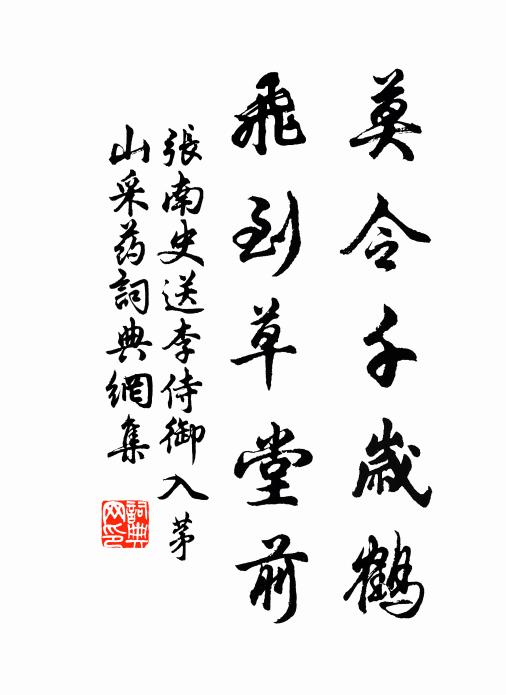 莫令千歲鶴
飛到草堂前
張南史送李侍御入茅
山采药詞典網集
詞典
网印